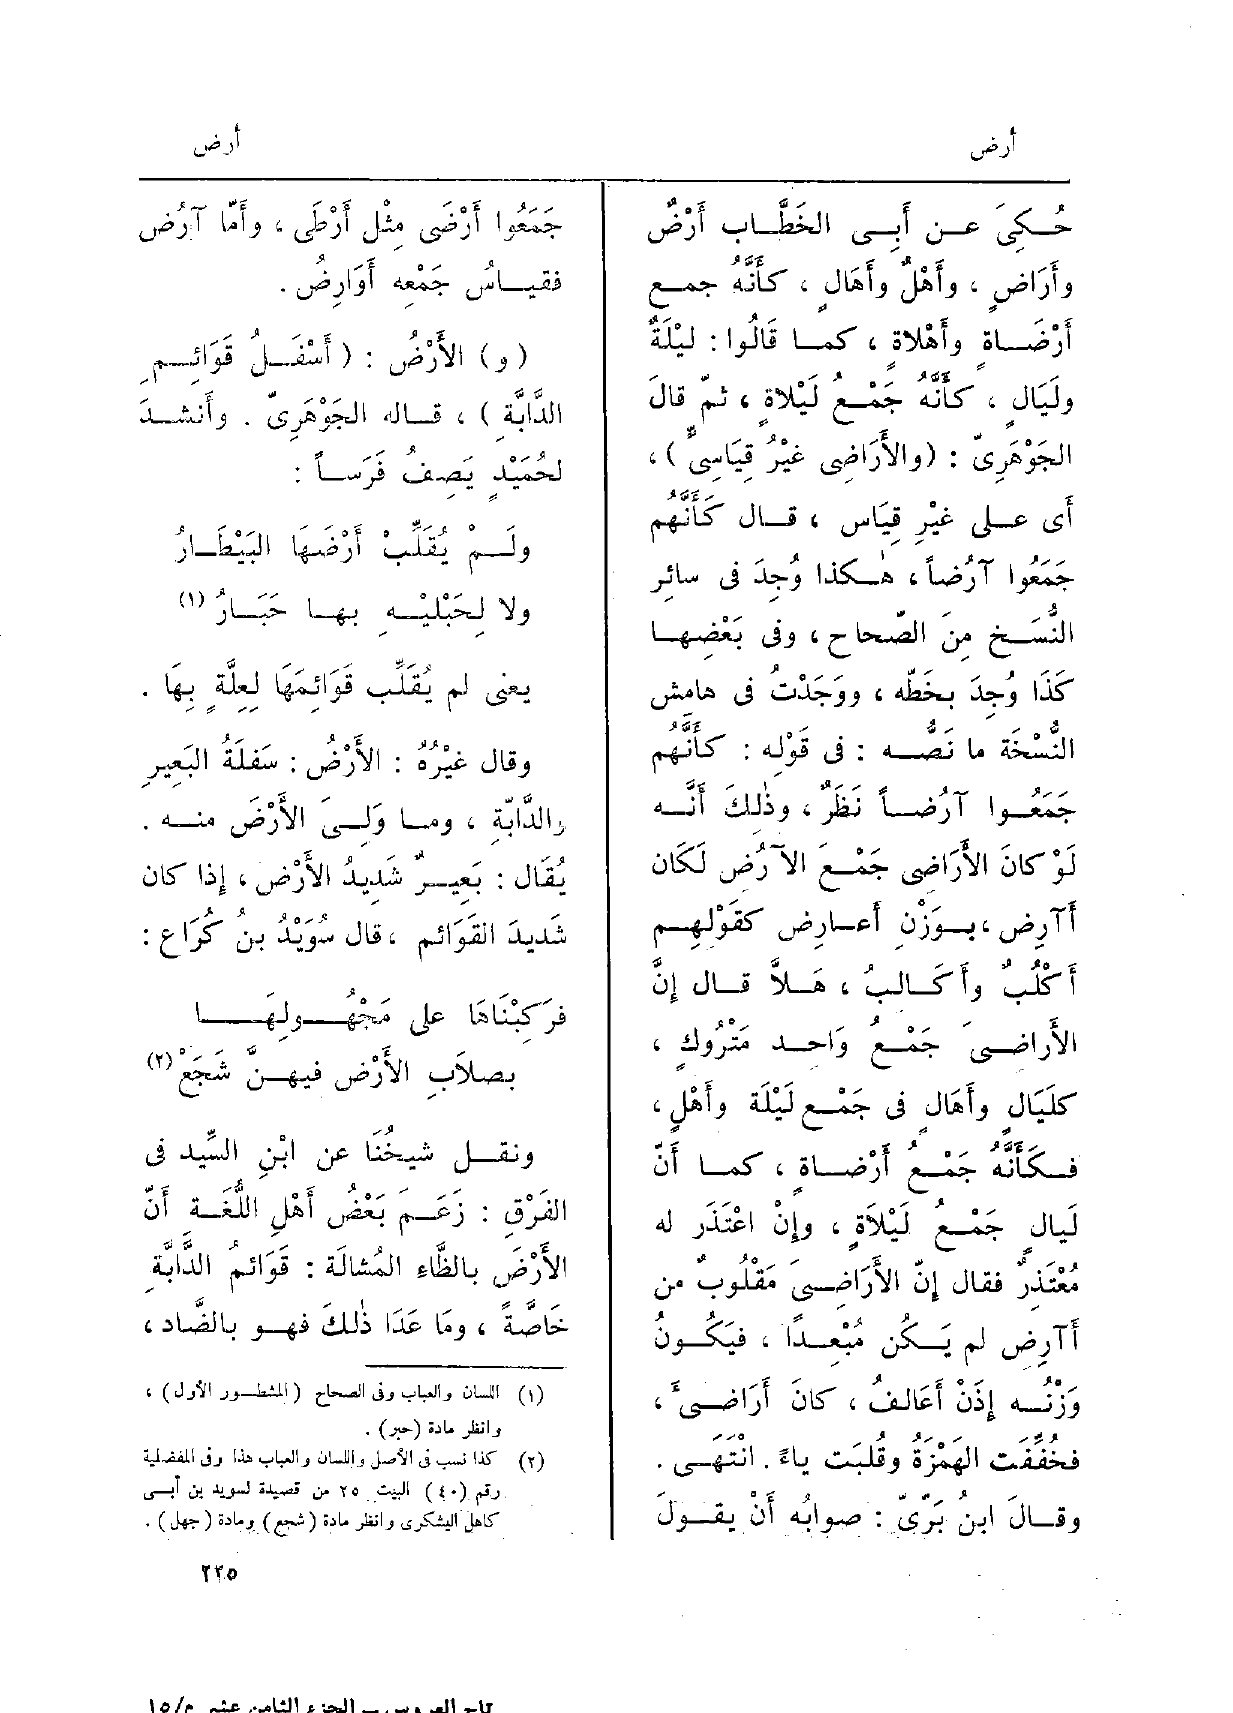 أرض
أرض
حُكِىَ عن أَبِى الخَطَّاب أَرْضٌ
وأَرَاضٍ ، وأَهْلٌ وأَهَالٍ ، كأَنَّهُ جمع
أَرْضَاة وأَهْلاة ، كما قَالُوا : لَيْلَةٌ
ولَيَالٍ ، كأَنَّهُ جَمْعُ لَيْلاةٍ ، ثمّ قالَ
الجَوْهَرِىّ : (والأَرَاضِى غَيْرُ قِيَاسِىٍّ) ،
أى على غَيْرِ قِيَاسٍ ، قال كَأَنَّهم
جَمَعُوا آرُضاً ، هٰكذا وُجِدَ فى سائر
النُّسَخِ مِنَ الصّحاح ، وفى بَعْضِها
كَذَا وُجِدَ بخَطِّه ، ووَجَدْتُ فى هامش
النُّسْخَة ما نَصُّه : فى قَوْلِه : كأَنَّهُم
جَمَعُوا آرُضاً نَظَرٌ ، وذٰلكَ أَنَّه
لَوْ كانَ الأَرَاضِى جَمْعَ الآرُض لَكَان
أَآرِض ، بوَزْن أَعارِض كقَوْلِهم
أَكْلُبٌ وأَكَالبُ ، هَلاَّ قال إِنَّ
الأَراضِىَ جَمْعُ وَاحد مَتْرُوكٍ ،
كلَيَالٍ وأَهَالٍ فى جَمْع لَيْلَة وأَهْلٍ ،
فكَأَنَّهُ جَمْعُ أَرْضَاةٍ ، كما أَنّ
لَيَالٍ جَمْعُ لَيْلَاةٍ ، وإِنْ اعْتَذَر له
مُعْتَذِرٌ فقال إِنّ الأَرَاضِىَ مَقْلُوبٌ من
أَآرِض لم يَكن مُبْعِدًا ، فيَكُونُ
وَزْنُه إِذَنْ أَعَالفُ ، كانَ أَرَاضِىءُ ،
فخُفِّفَت الهَمْزةُ وقُلِبَت ياءً . انتهَى .
وقالَ ابنُ بَرِّىّ : صوابُه أَنْ يقولَ
جَمَعُوا أَرْضَى مِثْل أَرْطَى ، وأَمّا آرُض
فقِيَاسُ جَمْعِه أَوَارِضُ .
(و) الأَرْضُ : ( أَسْفَلُ قَوَائِمِ
الدَّابَّة ) ، قاله الجَوْهَرِىّ . وأَنشدَ
لحُمَيْدٍ يَصِفُ فَرَساً :
ولَمْ يُقَلِّبْ أَرْضَهَا البَيْطَارُ
ولا لِحَبْلَيْهِ بها حَبَارُ (١)
يعنى لم يُقَلِّب قَوَائِمَهَا لِعِلَّةٍ بِهَا .
وقال غَيْرُهُ : الأَرْضُ : سَفِلَةُ البَعِيرِ
والدَّابَّةِ ، وما وَلِىَ الأَرْضَ منه .
يُقَال : بَعِيرٌ شَدِيدُ الأَرْضِ ، إِذا كان
شَدِيدَ القَوَائمِ ، قال سُوَيْدُ بنُ كُرَاع :
فرَكِبْنَاهَا على مَجْهُولِهَا
بصِلاَبِ الأَرْضِ فيهنَّ شَجَعْ (٢)
ونقل شيخُنَا عن ابْنِ السِّيد فى
الفَرْقِ : زَعَمَ بَعْضُ أَهْلِ اللُّغَةِ أَنّ
الأَرْضَ بالظَّاءِ المُشالَة : قَوَائمُ الدَّابَّةِ
خاصَّةً ، ومَا عَدَا ذٰلكَ فهو بالضَّاد ،
(١) اللسان والعباب وفى الصحاح (المشطور الأول) ،
وانظر مادة (حبر) .
(٢) كذا نسب فى الأصل واللسان والعباب هذا وفى المفضلية
رقم (٤٠) البيت ٢٥ من قصيدة لسويد بن أبى
كاهل اليشكرى وانظر مادة (شجع) ومادة (جهل) .
٢٢٥
تاج العروس – الجزء الثامن عشر م/١٥